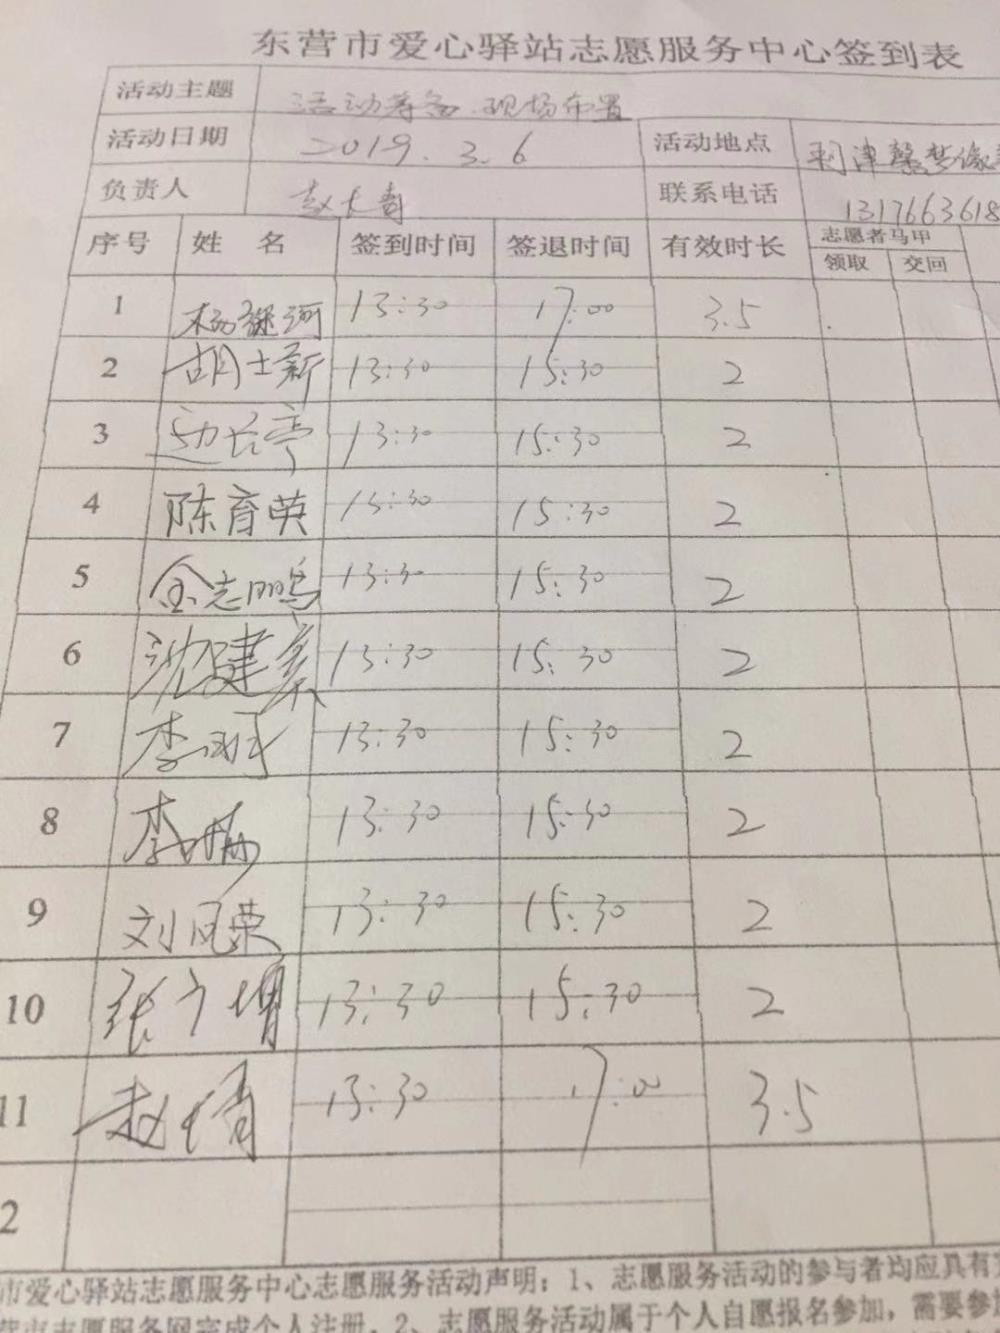 东营市爱心驿站志愿服务中心签到表
活动主题 活动筹备.现场布置
活动日期 2019.3.6 活动地点 利津
负责人 赵长青 联系电话 1317663618
序号 姓 名 签到时间 签退时间 有效时长 志愿者马甲
领取 交回
1 13:30 17:00 3.5
2 胡士新 13:30 15:30 2
3 边长亭 13:30 15:30 2
4 陈育英 13:30 15:30 2
5 金志鹏 13:30 15:30 2
6 沈建美 13:30 15:30 2
7 李 13:30 15:30 2
8 李 13:30 15:30 2
9 刘凤荣 13:30 15:30 2
10 张 13:30 15:30 2
11 赵长青 13:30 17:00 3.5
2
市爱心驿站志愿服务中心志愿服务活动声明：1、志愿服务活动的参与者均应具有完
营市志愿服务网完成个人注册。2、志愿服务活动属于个人自愿报名参加，需要参